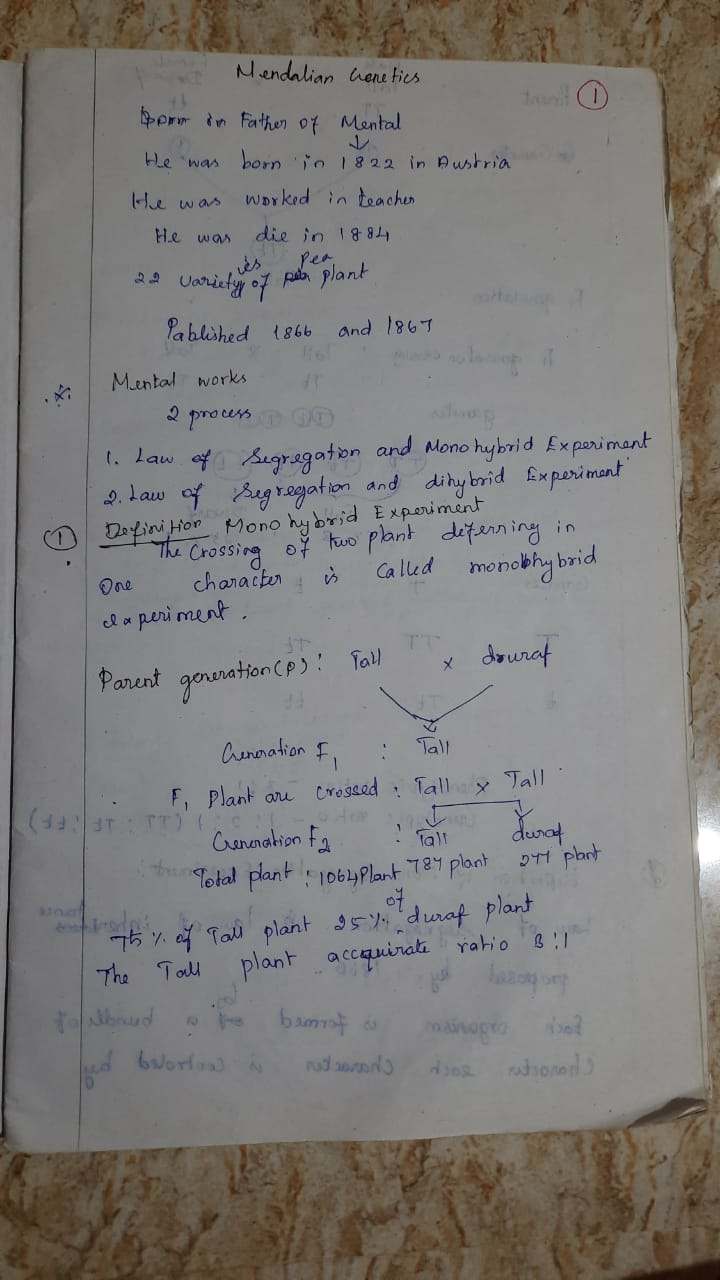 Mendalian Genetics
1
Born in Father of Mental
He was born in 1822 in Austria
He was worked in teacher
He was die in 1884
22 varietyies of pea plant
Pablished 1866 and 1867
Mental works
2 process
1. Law of Segregation and Monohybrid Experiment
2. Law of Segregation and dihybrid Experiment
1 Definition Monohybrid Experiment
The Crossing of two plant deferring in
One character is called monohybrid
experiment.
Parent generation (P): Tall x douraf
Generation F1 : Tall
F1 Plant are crossed : Tall x Tall
Generation F2 : Tall duraf
Total plant : 1064 Plant 787 plant 277 plant
75 % of Tall plant 25 % of duraf plant
The Tall plant accquirate ratio 3:1